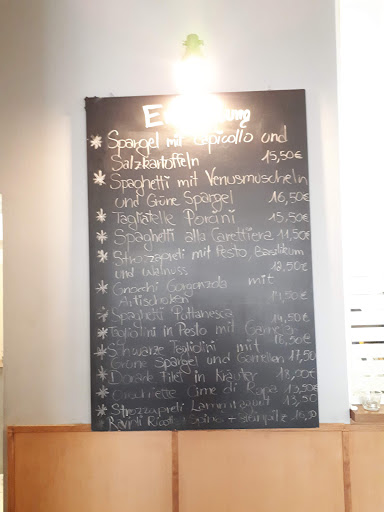 Spargel mit Capicollo und
Salzkartoffeln 15,50€
Spaghetti mit Venusmuscheln
und Grüne Spargel 16,50€
Tagliatelle Porcini 15,50€
Spaghetti alla Carettiera 11,50€
Strozzapreti mit Pesto Basilikum
und Walnuss 12,50€
Gnocchi Gorgonzola mit
Artischoken 14,50€
Spaghetti Puttanesca 14,50€
Tagliolini in Pesto mit 16,50€
Schwarze Tagliolini mit
Grüne Spargel und Garnelen 17,50
Dorade Filet in Kräuter 18,50€
Orecchiette Cime di Rapa 13,50€
Strozzapreti Lammragout 13,50
Ravioli